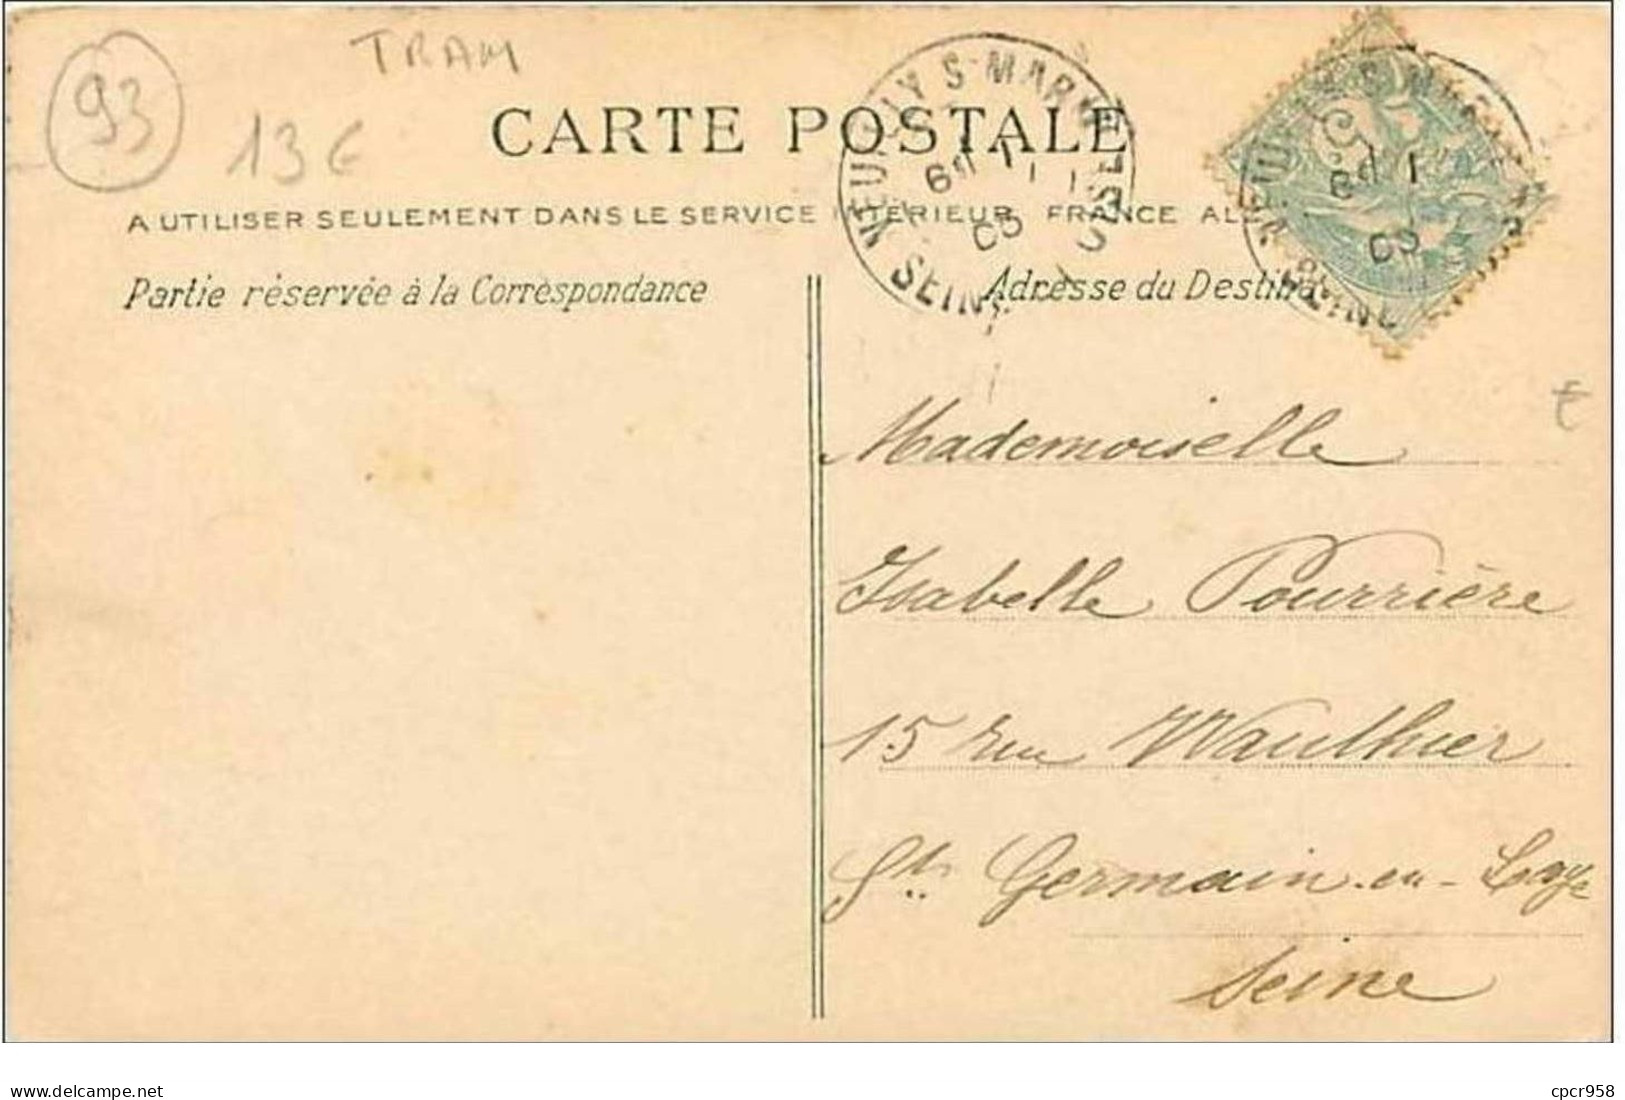 93
TRAM
13€
CARTE POSTALE
A UTILISER SEULEMENT DANS LE SERVICE INTERIEUR FRANCE AL
Partie réservée à la Correspondance
Adresse du Destina
NEUILLY S MARNE
SEINE
05
€
Mademoiselle
Isabelle Pourrière
15 rue Wauthier
St. Germain-en-Laye
Seine
www.delcampe.net
cpcr958